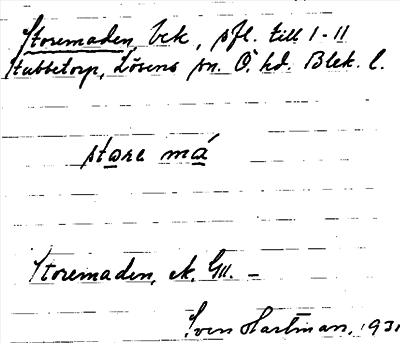 Storemaden, bck, sfl. till 1-11
Stubbetorp, Lösens sn. Ö. hd. Blek. l.
stare má
Storemaden, ek. Gu. -
Sven Hartman, 1931